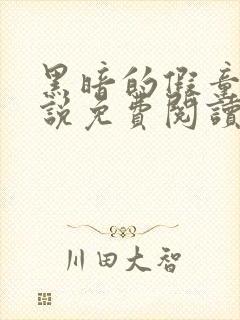 黑暗的假童
說免費閱讀
川田大智